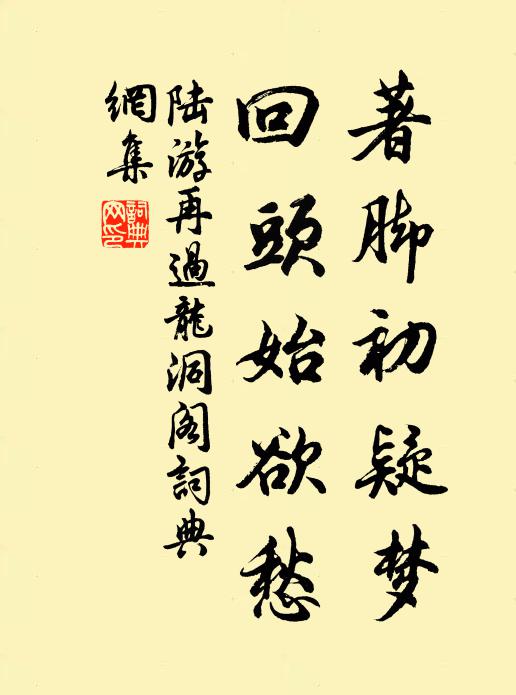 著脚初疑梦
回頭始欲愁
陆游再過龍洞阁詞典
網集
詞典
网印